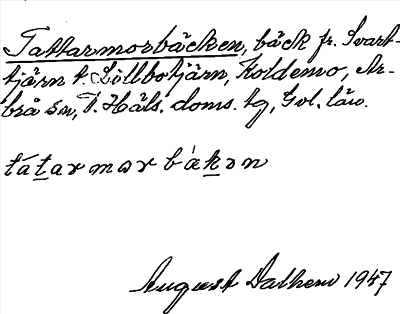 Tattarmorbäcken, bäck fr. Svart-
tjärn t. Lillbotjärn, Koldemo, Ar-
brå sn, V. Häls. doms. tg, Gvl. län.
tátarmor bàkən
August Dalhem 1947